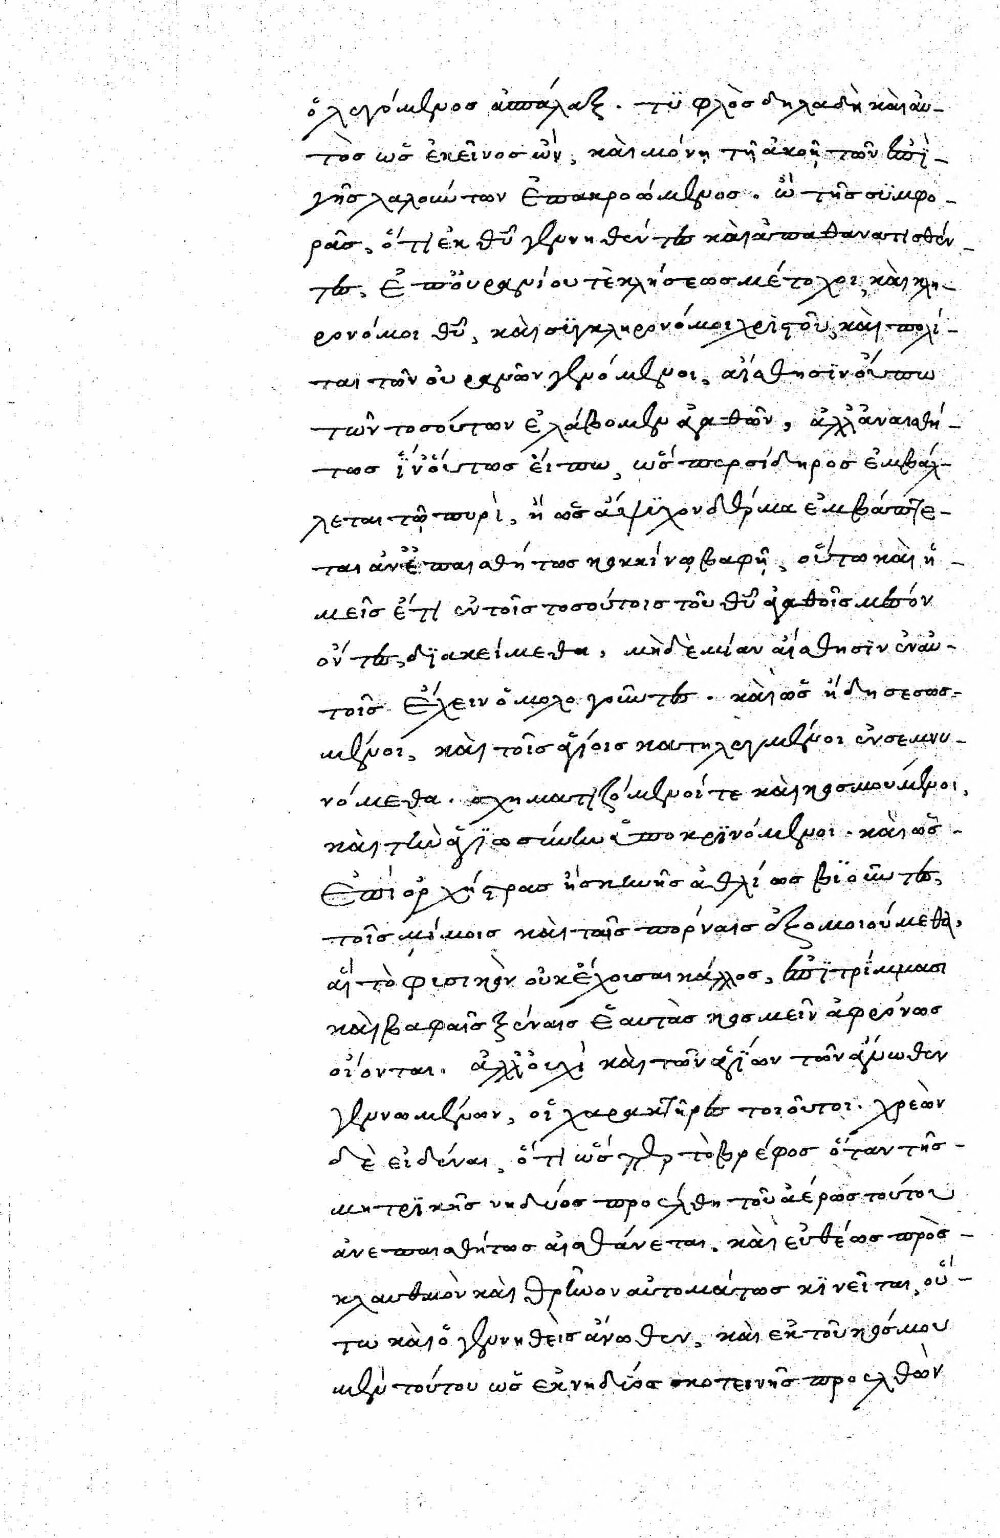 ὁ λεγόμενος ἀσπάλαξ. τυφλὸς δηλαδὴ καὶ αὐ-
τὸς ὡς ἐκεῖνος ὤν, καὶ μόνῃ τῇ ἀκοῇ τῶν ἐπὶ
γῆς λαλούντων ἐπακροώμενος. ὢ τῆς συμφο-
ρᾶς, ὅτι ἐκ θῦ γεννηθέντες καὶ ἀπαθανατισθέν-
τες, ἐπουρανίου τὲ κλήσεως μέτοχοι, καὶ κλη-
ρονόμοι θῦ, καὶ συγκληρονόμοι χριστοῦ, καὶ πολῖ-
ται τῶν οὐρανῶν γενόμενοι, αἴσθησιν οὔπω
τῶν τοσούτων ἐλάβομεν ἀγαθῶν, ἀλλ' ἀναισθή-
τως ἵν' οὕτως εἴπω, ὥσπερ σίδηρος ἐμβάλ-
λεται τῷ πυρὶ, ἢ ὡς ἄψυχον δέρμα ἐμβάπτε-
ται ἀνεπαισθήτως κοκκίνῳ βαφῇ, οὕτω καὶ ἡ-
μεῖς ἔτι ἐν τοῖς τοσούτοις τοῦ θῦ ἀγαθοῖς μέσον
ὄντες διακείμεθα, μηδεμίαν αἴσθησιν ἐν αὐ-
τοῖς ἔχειν ὁμολογοῦντες. καὶ ὡς ἤδη σεσωσ-
μένοι, καὶ τοῖς ἁγίοις κατηλεγμένοι ἐνσεμνυ-
νόμεθα. σχηματιζόμενοί τε καὶ κοσμούμενοι,
καὶ τὴν ἁγιωσύνην ὑποκρινόμενοι. καὶ ὡς
ἐπὶ ὀρχήστρας ἢ σκηνῆς ἀθλίως βιοῦντες,
τοῖς μίμοις καὶ ταῖς πόρναις ἐξομοιούμεθα,
αἳ τὸ φυσικὸν οὐκ ἔχουσαι κάλλος, ἐπιτρίμμασι
καὶ βαφαῖς ξέναις ἑαυτὰς κοσμεῖν ἀφρόνως
οἴονται. ἀλλ' οὐχὶ καὶ τῶν ἁγίων τῶν ἄνωθεν
γεννωμένων, οἱ χαρακτῆρες τοιοῦτοι. χρεὼν
δὲ εἰδέναι, ὅτι ὥσπερ τὸ βρέφος ὅταν τῆς
μητρικῆς νηδύος προέλθῃ τοῦ ἀέρος τούτου
ἀνεπαισθήτως αἰσθάνεται. καὶ εὐθέως πρὸς
κλαυθμὸν καὶ θρῆνον αὐτομάτως κινεῖται, οὕ-
τω καὶ ὁ γεννηθεὶς ἄνωθεν, καὶ ἐκ τοῦ κόσμου
μὲν τούτου ὡς ἐκ νηδύος σκοτεινῆς προελθὼν